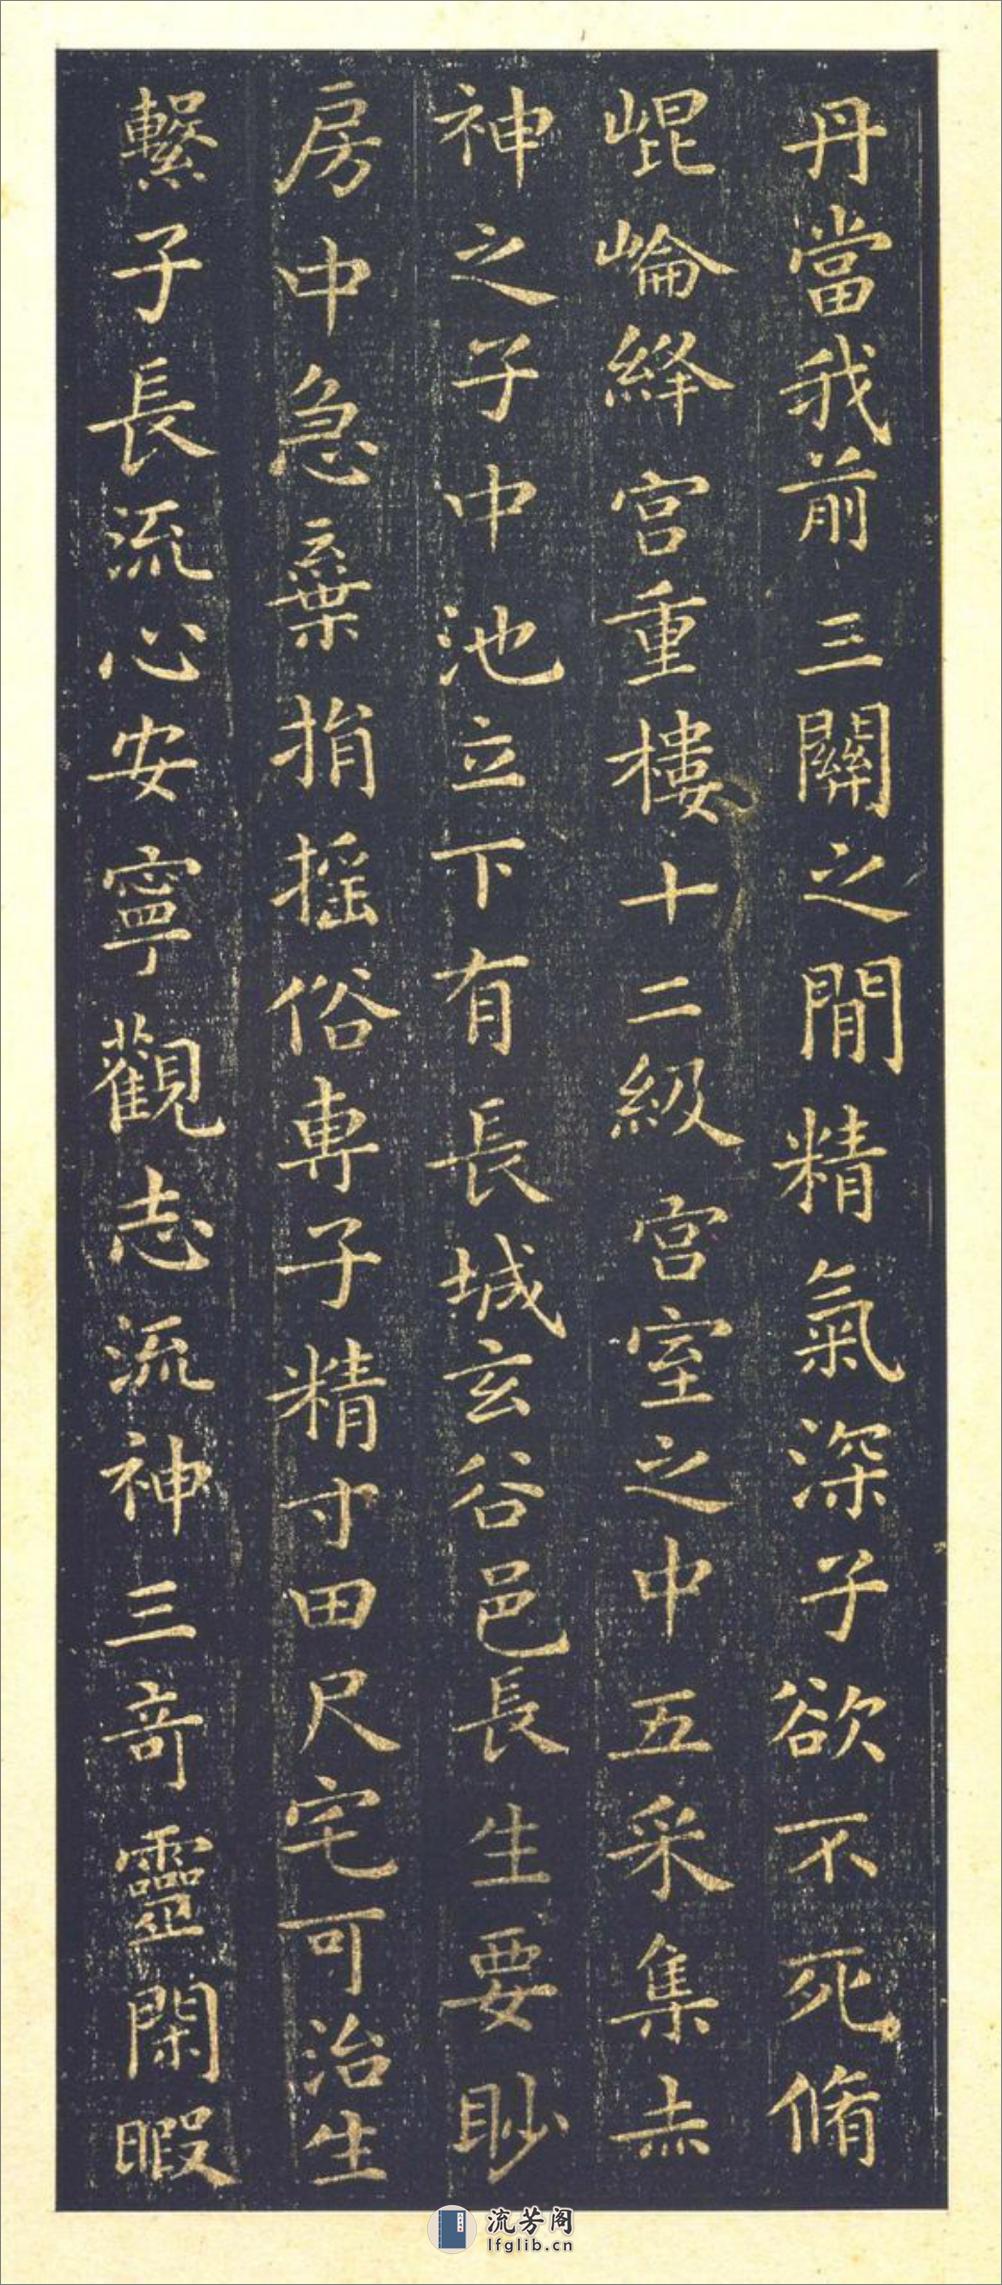 丹當我前三關之間精氣深子欲不死脩
崐崘絳宮重樓十二級宮室之中五采集赤
神之子中池立下有長城玄谷邑長生要眇
房中急棄捐搖俗專子精寸田尺宅可治生
繫子長流心安寧觀志流神三奇靈閑暇
流芳阁
lfglib.cn